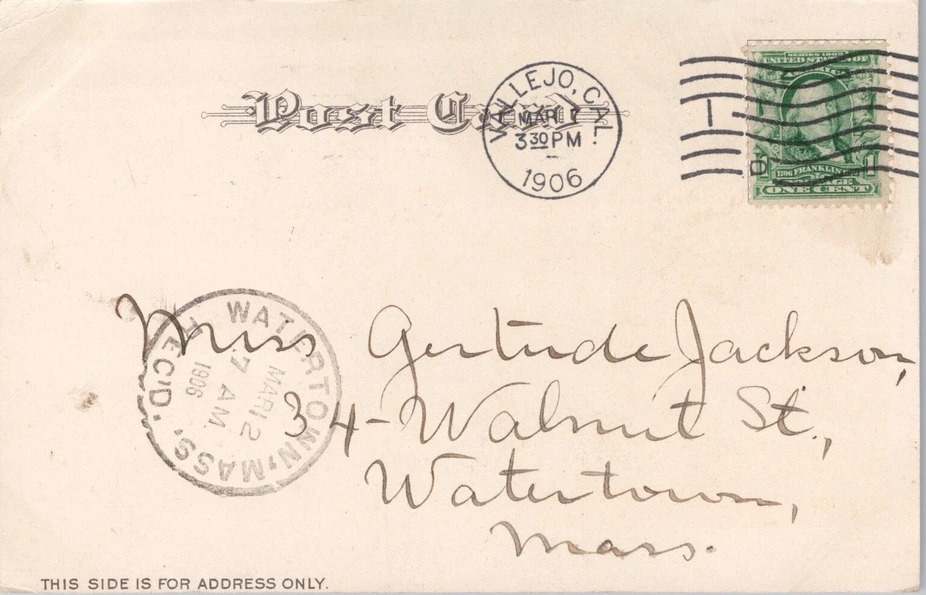 Post Card
VALLEJO, CAL.
MAR
3 30 PM
1906
SERIES 1902
UNITED STATES OF
1706 FRANKLIN
ONE CENT
WATERTOWN, MASS.
MAR 12
7 AM
1906
REC'D.
Miss Gertrude Jackson,
34 - Walnut St.,
Watertown,
Mass.
THIS SIDE IS FOR ADDRESS ONLY.